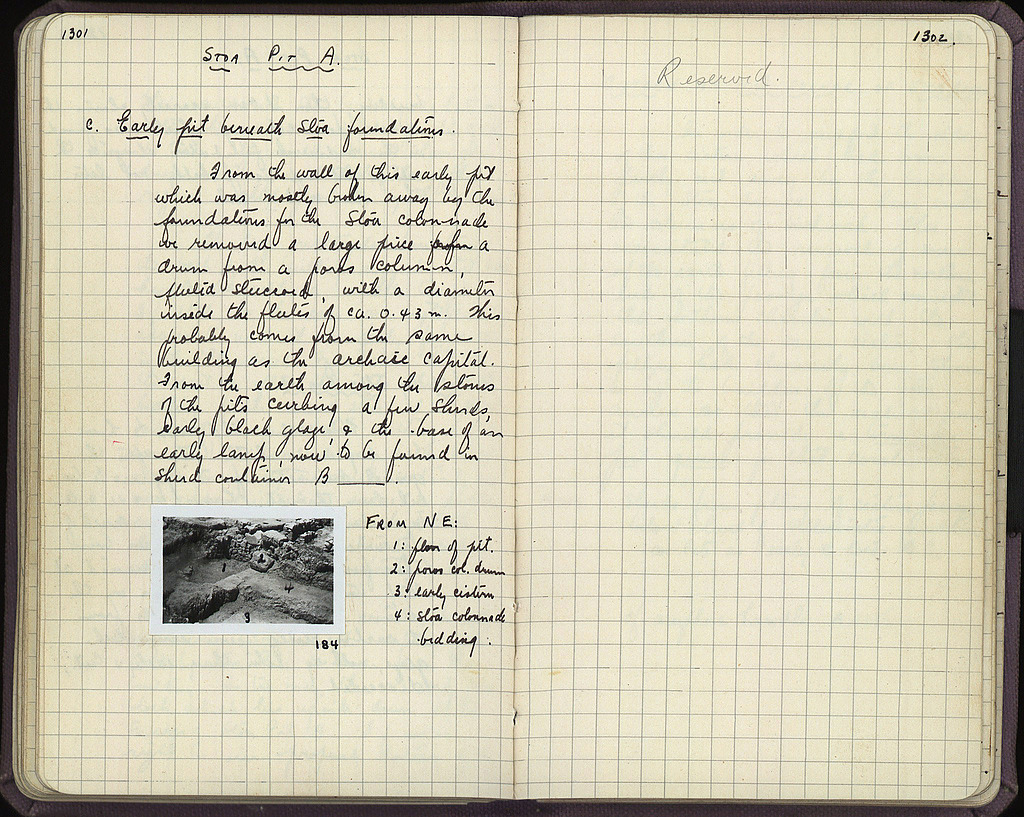 1301
Stoa Pit A.
c. Early pit beneath Stoa foundations.
From the wall of this early pit
which was mostly broken away by the
foundations for the Stoa colonnade
we removed a large piece a
drum from a poros column,
fluted stuccoed, with a diameter
inside the flutes of ca. 0.43 m. This
probably comes from the same
building as the archaic capital.
From the earth among the stones
of the pit's curbing a few sherds,
early black glaze, & the base of an
early lamp, now to be found in
sherd container B ____.
From NE:
1: floor of pit.
2: poros col. drum
3: early cistern
4: stoa colonnade
bedding.
1
2
4
3
184
1302.
Reserved.